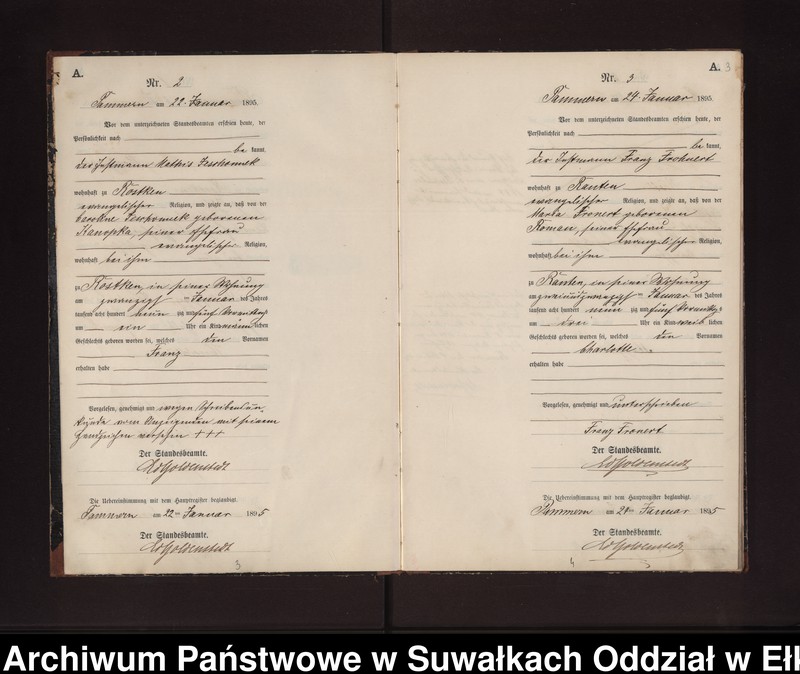 A.
Nr. 2
Tammern am 22. Januar 1895.
Vor dem unterzeichneten Standesbeamten erschien heute, der
Persönlichkeit nach
be kannt,
der Instmann Mathis
wohnhaft zu Kostken
evangelischer Religion, und zeigte an, daß von der
geborenen
Kanopka, seiner Ehefrau
evangelischer Religion,
wohnhaft bei ihm
zu Kostken, in seiner Wohnung
am zwanzigst en Januar des Jahres
tausend acht hundert neun zig und fünf Vormittags
um ein Uhr ein Kind männ lichen
Geschlechts geboren worden sei, welches den Vornamen
Franz
erhalten habe
Vorgelesen, genehmigt und wegen Schreibensun
kunde vom Anzeigenden mit seinem
Handzeichen versehen +++
Der Standesbeamte.
Die Uebereinstimmung mit dem Hauptregister beglaubigt.
Tammern am 22ten Januar 1895
Der Standesbeamte.
3
A. 3
Nr. 3
Tammern am 24. Januar 1895.
Vor dem unterzeichneten Standesbeamten erschien heute, der
Persönlichkeit nach
be kannt,
der Instmann Franz Fronert
wohnhaft zu Ranten
evangelischer Religion, und zeigte an, daß von der
Maria Fronert geborenen
Roman, seiner Ehefrau
evangelischer Religion,
wohnhaft bei ihm
zu Ranten, in seiner Wohnung
am zweiundzwanzigst en Januar des Jahres
tausend acht hundert neun zig und fünf Vormittags
um drei Uhr ein Kind weib lichen
Geschlechts geboren worden sei, welches den Vornamen
Charlotte
erhalten habe
Vorgelesen, genehmigt und unterschrieben
Franz Fronert
Der Standesbeamte.
Die Uebereinstimmung mit dem Hauptregister beglaubigt.
Tammern am 24ten Januar 1895
Der Standesbeamte.
4 3
Archiwum Państwowe w Suwałkach Oddział w Ełk